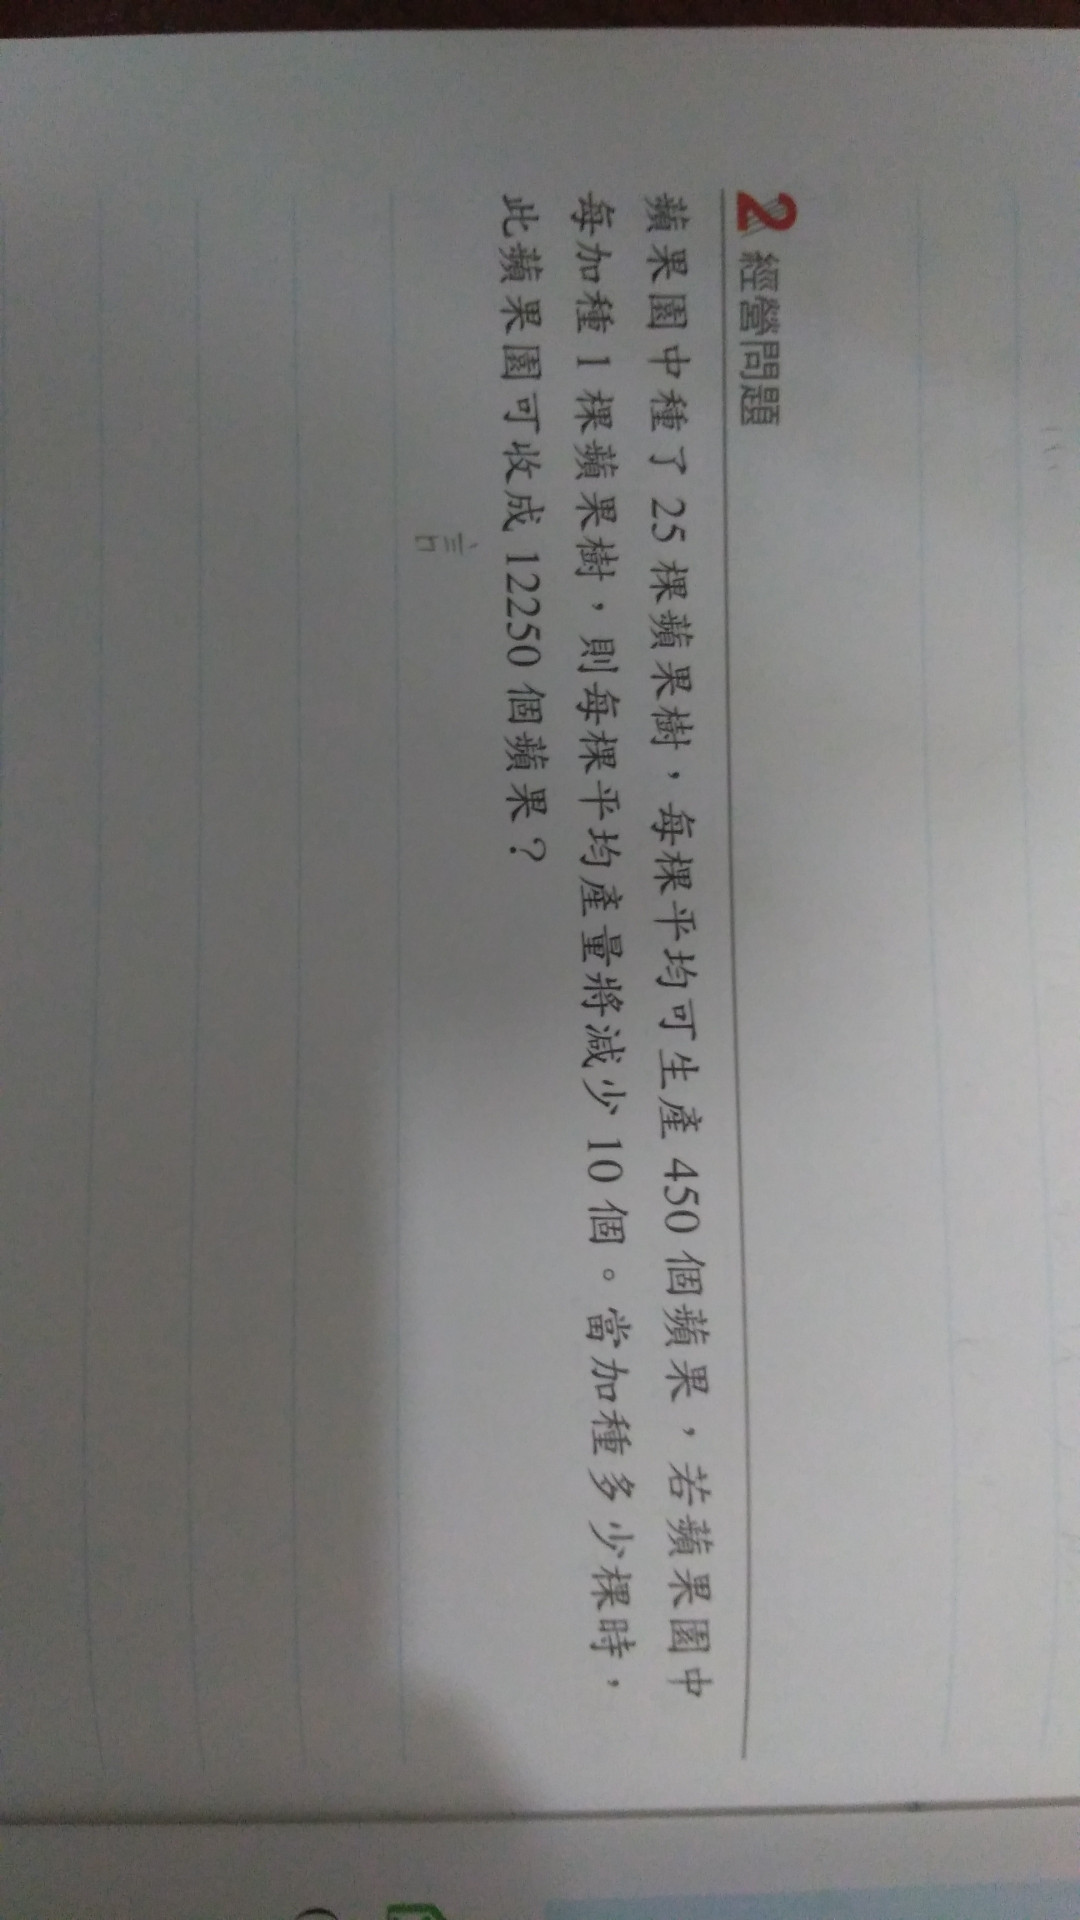 2 經營問題
蘋果園中種了 25 棵蘋果樹，每棵平均可生產 450 個蘋果，若蘋果園中
每加種 1 棵蘋果樹，則每棵平均產量將減少 10 個。當加種多少棵時，
此蘋果園可收成 12250 個蘋果？